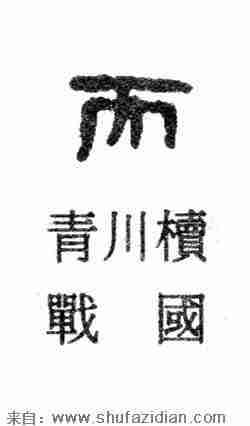 而
青川櫝
戰國
来自：www.shufazidian.com